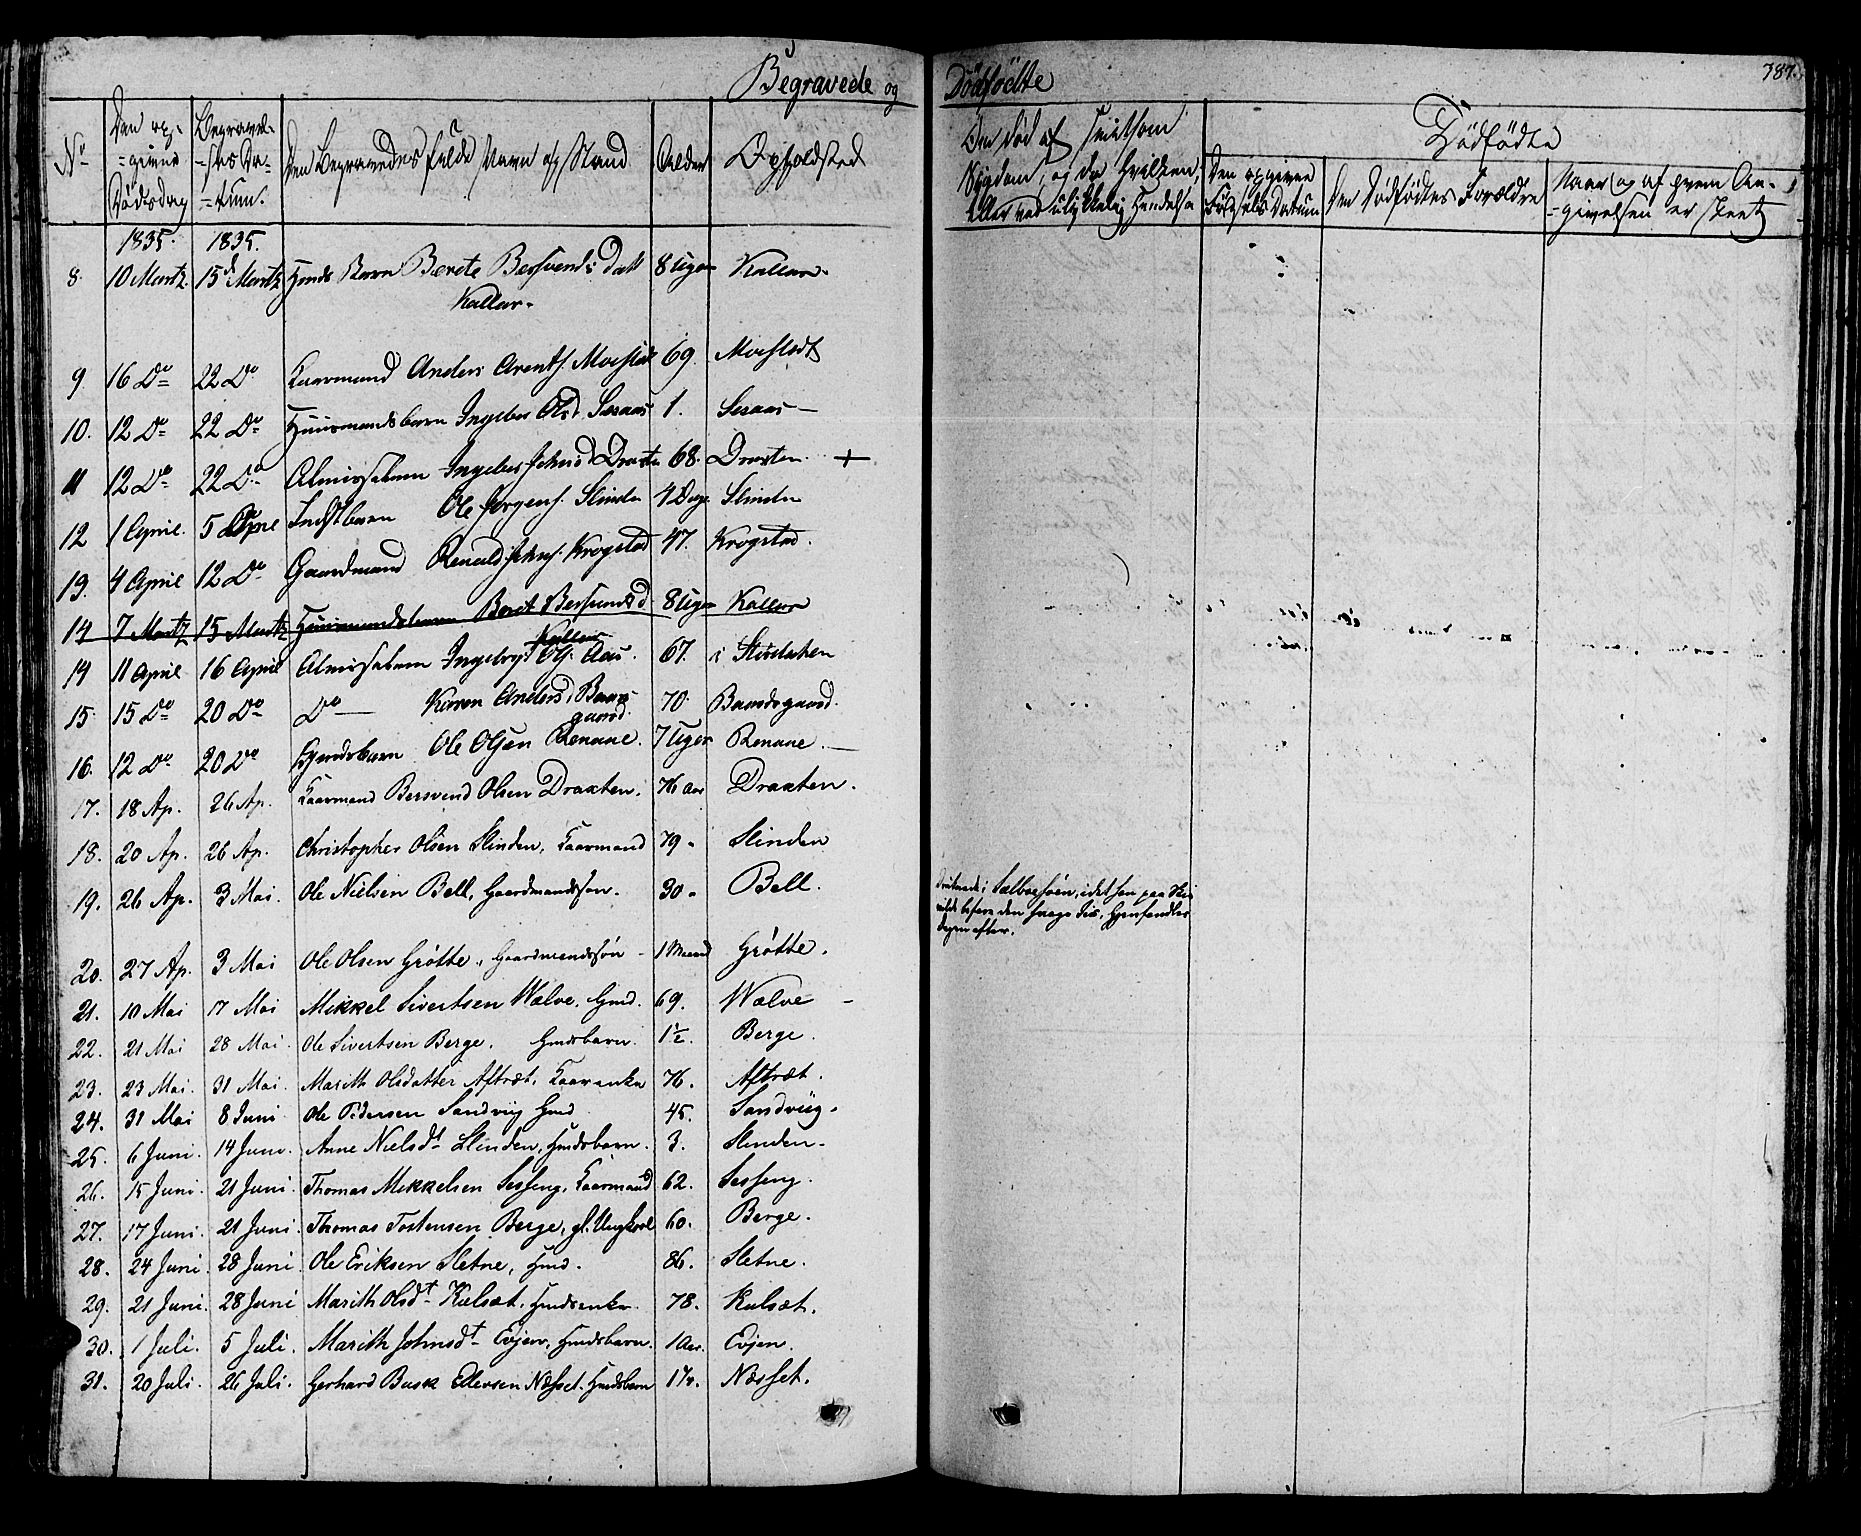 Begravede og Dödfödte
387.
No
Den op-
-givne
Dödsdag
Begravel-
-ses Da-
-tum.
Den Begravedes fulde Navn og Stand
Alder
Opholdsted
Om död af smitsom
Sygdom, og da hvilken,
eller ved ulykkelig Hendelse
Dödfödte
Den opgivne
Födsels Datum
Den Dödfödtes Forældre
Naar og af hvem An-
-givelsen er skeet
1835. 1835.
8. 10 Martz 15d Martz Hmds Barn Berete Bersvends Datt 8 Uger Kallar.
Kallar.
9. 16 Do 22 Do Kaarmand Anders Arents. Moeslet 69. Moeslet
10. 12 Do 22 Do Huusmandsbarn Ingebor Olsd. Seraas 1. Seraas
11 12 Do 22 Do Almisselem Ingebor Johnsd Draxten 68. Draxten. +
12 1 April. 5 April Indstbarn Ole Jørgens. Slinden 4 Dage Slinden
13. 4 April 12 Do Gaardmand Renald Johns. Krogstad 47. Krogstad.
14 7 Martz 15 Martz Huusmandsbarn Beret Bersvendsd. 8 Uger Kallar
Kallar
14 11 April 16 April Almisselem Ingebrgt Ols. Aas. 67. i
15. 15 Do 20 Do Do Karen Andersd. Baards- 70. Baardsgaard.
gaard.
16. 12 Do 20 Do Hmdsbarn Ole Olsen Renaae. 7 Uger Renaae.
17. 18 Ap. 26 Ap. Kaarmand Bersvend Olsen Draxten. 76 Aar Draxten.
18. 20 Ap. 26 Ap. Christopher Olsen Slinden, Kaarmand 79 " Slinden
19. 26 Ap. 3 Mai. Ole Nielsen Bell, Gaardmandssøn. 30 " Bell. Druknede i Selboesöen, idet han paa Skie
vilde befare den svage Iis, Gjenfandtes
Dagen efter.
20. 27 Ap. 3 Mai Ole Olsen Grøtte, Gaardmandssøn 1 Maaned Grøtte.
21. 10 Mai 17 Mai Mikkel Sivertsen Wælve. Gmd. 69. Wælve
22. 21 Mai 28 Mai. Ole Sivertsen Berge. Hmdsbarn. 1½. Berge.
23. 23 Mai. 31 Mai. Marith Olsdatter Aftræt, Kaarenke 76. Aftræt.
24. 31 Mai 8 Juni Ole Pedersen Sandviig Hmd 45. Sandviig.
25. 6 Juni. 14 Juni. Anne Nielsdt Slinden, Hmdsbarn. 3. Slinden.
26. 15 Juni. 21 Juni. Thomas Mikkelsen Sesseng, Kaarmand 62. Sesseng.
27. 17 Juni. 21 Juni. Thomas Tostensen Berge, gl. Ungkarl 60. Berge.
28. 24 Juni. 28 Juni Ole Eriksen Sletne, Hmd. 86. Sletne.
29. 21 Juni. 28 Juni Marith Olsdt Kulsæt, Hmdsenke. 78. Kulsæt.
30. 1 Juli. 5 Juli. Marith Johnsdt Evjen, Hmdsbarn. 1 Aar. Evjen.
31. 20 Juli. 26 Juli. Gerhard Busk Ellevsen Næsset. Hmdsbarn Næsset.